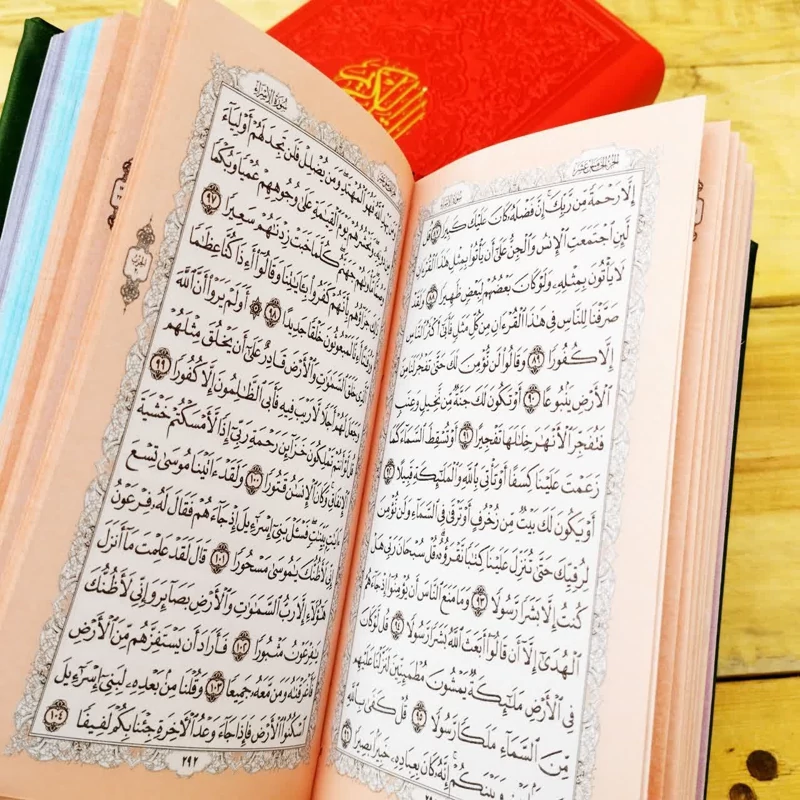 الجزء الخامس عشر
سورة الإسراء
إِلَّا رَحْمَةً مِّن رَّبِّكَ إِنَّ فَضْلَهُۥ كَانَ عَلَيْكَ كَبِيرًا ٨٧
لَّئِنِ ٱجْتَمَعَتِ ٱلْإِنسُ وَٱلْجِنُّ عَلَىٰٓ أَن يَأْتُوا۟ بِمِثْلِ هَٰذَا ٱلْقُرْءَانِ
لَا يَأْتُونَ بِمِثْلِهِۦ وَلَوْ كَانَ بَعْضُهُمْ لِبَعْضٍ ظَهِيرًا ٨٨ وَلَقَدْ
صَرَّفْنَا لِلنَّاسِ فِى هَٰذَا ٱلْقُرْءَانِ مِن كُلِّ مَثَلٍ فَأَبَىٰٓ أَكْثَرُ ٱلنَّاسِ
إِلَّا كُفُورًا ٨٩ وَقَالُوا۟ لَن نُّؤْمِنَ لَكَ حَتَّىٰ تَفْجُرَ لَنَا مِنَ
ٱلْأَرْضِ يَنۢبُوعًا ٩٠ أَوْ تَكُونَ لَكَ جَنَّةٌ مِّن نَّخِيلٍ وَعِنَبٍ
فَتُفَجِّرَ ٱلْأَنْهَٰرَ خِلَٰلَهَا تَفْجِيرًا ٩١ أَوْ تُسْقِطَ ٱلسَّمَآءَ كَمَا
زَعَمْتَ عَلَيْنَا كِسَفًا أَوْ تَأْتِىَ بِٱللَّهِ وَٱلْمَلَٰٓئِكَةِ قَبِيلًا ٩٢
أَوْ يَكُونَ لَكَ بَيْتٌ مِّن زُخْرُفٍ أَوْ تَرْقَىٰ فِى ٱلسَّمَآءِ وَلَن نُّؤْمِنَ
لِرُقِيِّكَ حَتَّىٰ تُنَزِّلَ عَلَيْنَا كِتَٰبًا نَّقْرَؤُهُۥ قُلْ سُبْحَانَ رَبِّى هَلْ
كُنتُ إِلَّا بَشَرًا رَّسُولًا ٩٣ وَمَا مَنَعَ ٱلنَّاسَ أَن يُؤْمِنُوٓا۟ إِذْ جَآءَهُمُ
ٱلْهُدَىٰٓ إِلَّآ أَن قَالُوٓا۟ أَبَعَثَ ٱللَّهُ بَشَرًا رَّسُولًا ٩٤ قُل لَّوْ كَانَ
فِى ٱلْأَرْضِ مَلَٰٓئِكَةٌ يَمْشُونَ مُطْمَئِنِّينَ لَنَزَّلْنَا عَلَيْهِم
مِّنَ ٱلسَّمَآءِ مَلَكًا رَّسُولًا ٩٥ قُلْ كَفَىٰ بِٱللَّهِ
وَبَيْنَكُمْ إِنَّهُۥ كَانَ بِعِبَادِهِۦ خَبِيرًۢا بَصِيرًا ٩٦
سورة الإسراء
ٱللَّهُ فَهُوَ ٱلْمُهْتَدِ وَمَن يُضْلِلْ فَلَن تَجِدَ لَهُمْ أَوْلِيَآءَ
وَنَحْشُرُهُمْ يَوْمَ ٱلْقِيَٰمَةِ عَلَىٰ وُجُوهِهِمْ عُمْيًا وَبُكْمًا
مَّأْوَىٰهُمْ جَهَنَّمُ كُلَّمَا خَبَتْ زِدْنَٰهُمْ سَعِيرًا ٩٧
ذَٰلِكَ جَزَآؤُهُم بِأَنَّهُمْ كَفَرُوا۟ بِـَٔايَٰتِنَا وَقَالُوٓا۟ أَءِذَا كُنَّا عِظَٰمًا
أَءِنَّا لَمَبْعُوثُونَ خَلْقًا جَدِيدًا ٩٨ ۞ أَوَلَمْ يَرَوْا۟ أَنَّ ٱللَّهَ
ٱلَّذِى خَلَقَ ٱلسَّمَٰوَٰتِ وَٱلْأَرْضَ قَادِرٌ عَلَىٰٓ أَن يَخْلُقَ مِثْلَهُمْ
وَجَعَلَ لَهُمْ أَجَلًا لَّا رَيْبَ فِيهِ فَأَبَى ٱلظَّٰلِمُونَ إِلَّا كُفُورًا ٩٩
قُل لَّوْ أَنتُمْ تَمْلِكُونَ خَزَآئِنَ رَحْمَةِ رَبِّىٓ إِذًا لَّأَمْسَكْتُمْ خَشْيَةَ
ٱلْإِنفَاقِ وَكَانَ ٱلْإِنسَٰنُ قَتُورًا ١٠٠ وَلَقَدْ ءَاتَيْنَا مُوسَىٰ تِسْعَ
ءَايَٰتٍۭ بَيِّنَٰتٍ فَسْـَٔلْ بَنِىٓ إِسْرَٰٓءِيلَ إِذْ جَآءَهُمْ فَقَالَ لَهُۥ فِرْعَوْنُ
إِنِّى لَأَظُنُّكَ يَٰمُوسَىٰ مَسْحُورًا ١٠١ قَالَ لَقَدْ عَلِمْتَ مَآ أَنزَلَ
هَٰٓؤُلَآءِ إِلَّا رَبُّ ٱلسَّمَٰوَٰتِ وَٱلْأَرْضِ بَصَآئِرَ وَإِنِّى لَأَظُنُّكَ
يَٰفِرْعَوْنُ مَثْبُورًا ١٠٢ فَأَرَادَ أَن يَسْتَفِزَّهُم مِّنَ ٱلْأَرْضِ
فَأَغْرَقْنَٰهُ وَمَن مَّعَهُۥ جَمِيعًا ١٠٣ وَقُلْنَا مِنۢ بَعْدِهِۦ لِبَنِىٓ إِسْرَٰٓءِيلَ
ٱسْكُنُوا۟ ٱلْأَرْضَ فَإِذَا جَآءَ وَعْدُ ٱلْـَٔاخِرَةِ جِئْنَا بِكُمْ لَفِيفًا ١٠٤
٢٩٢